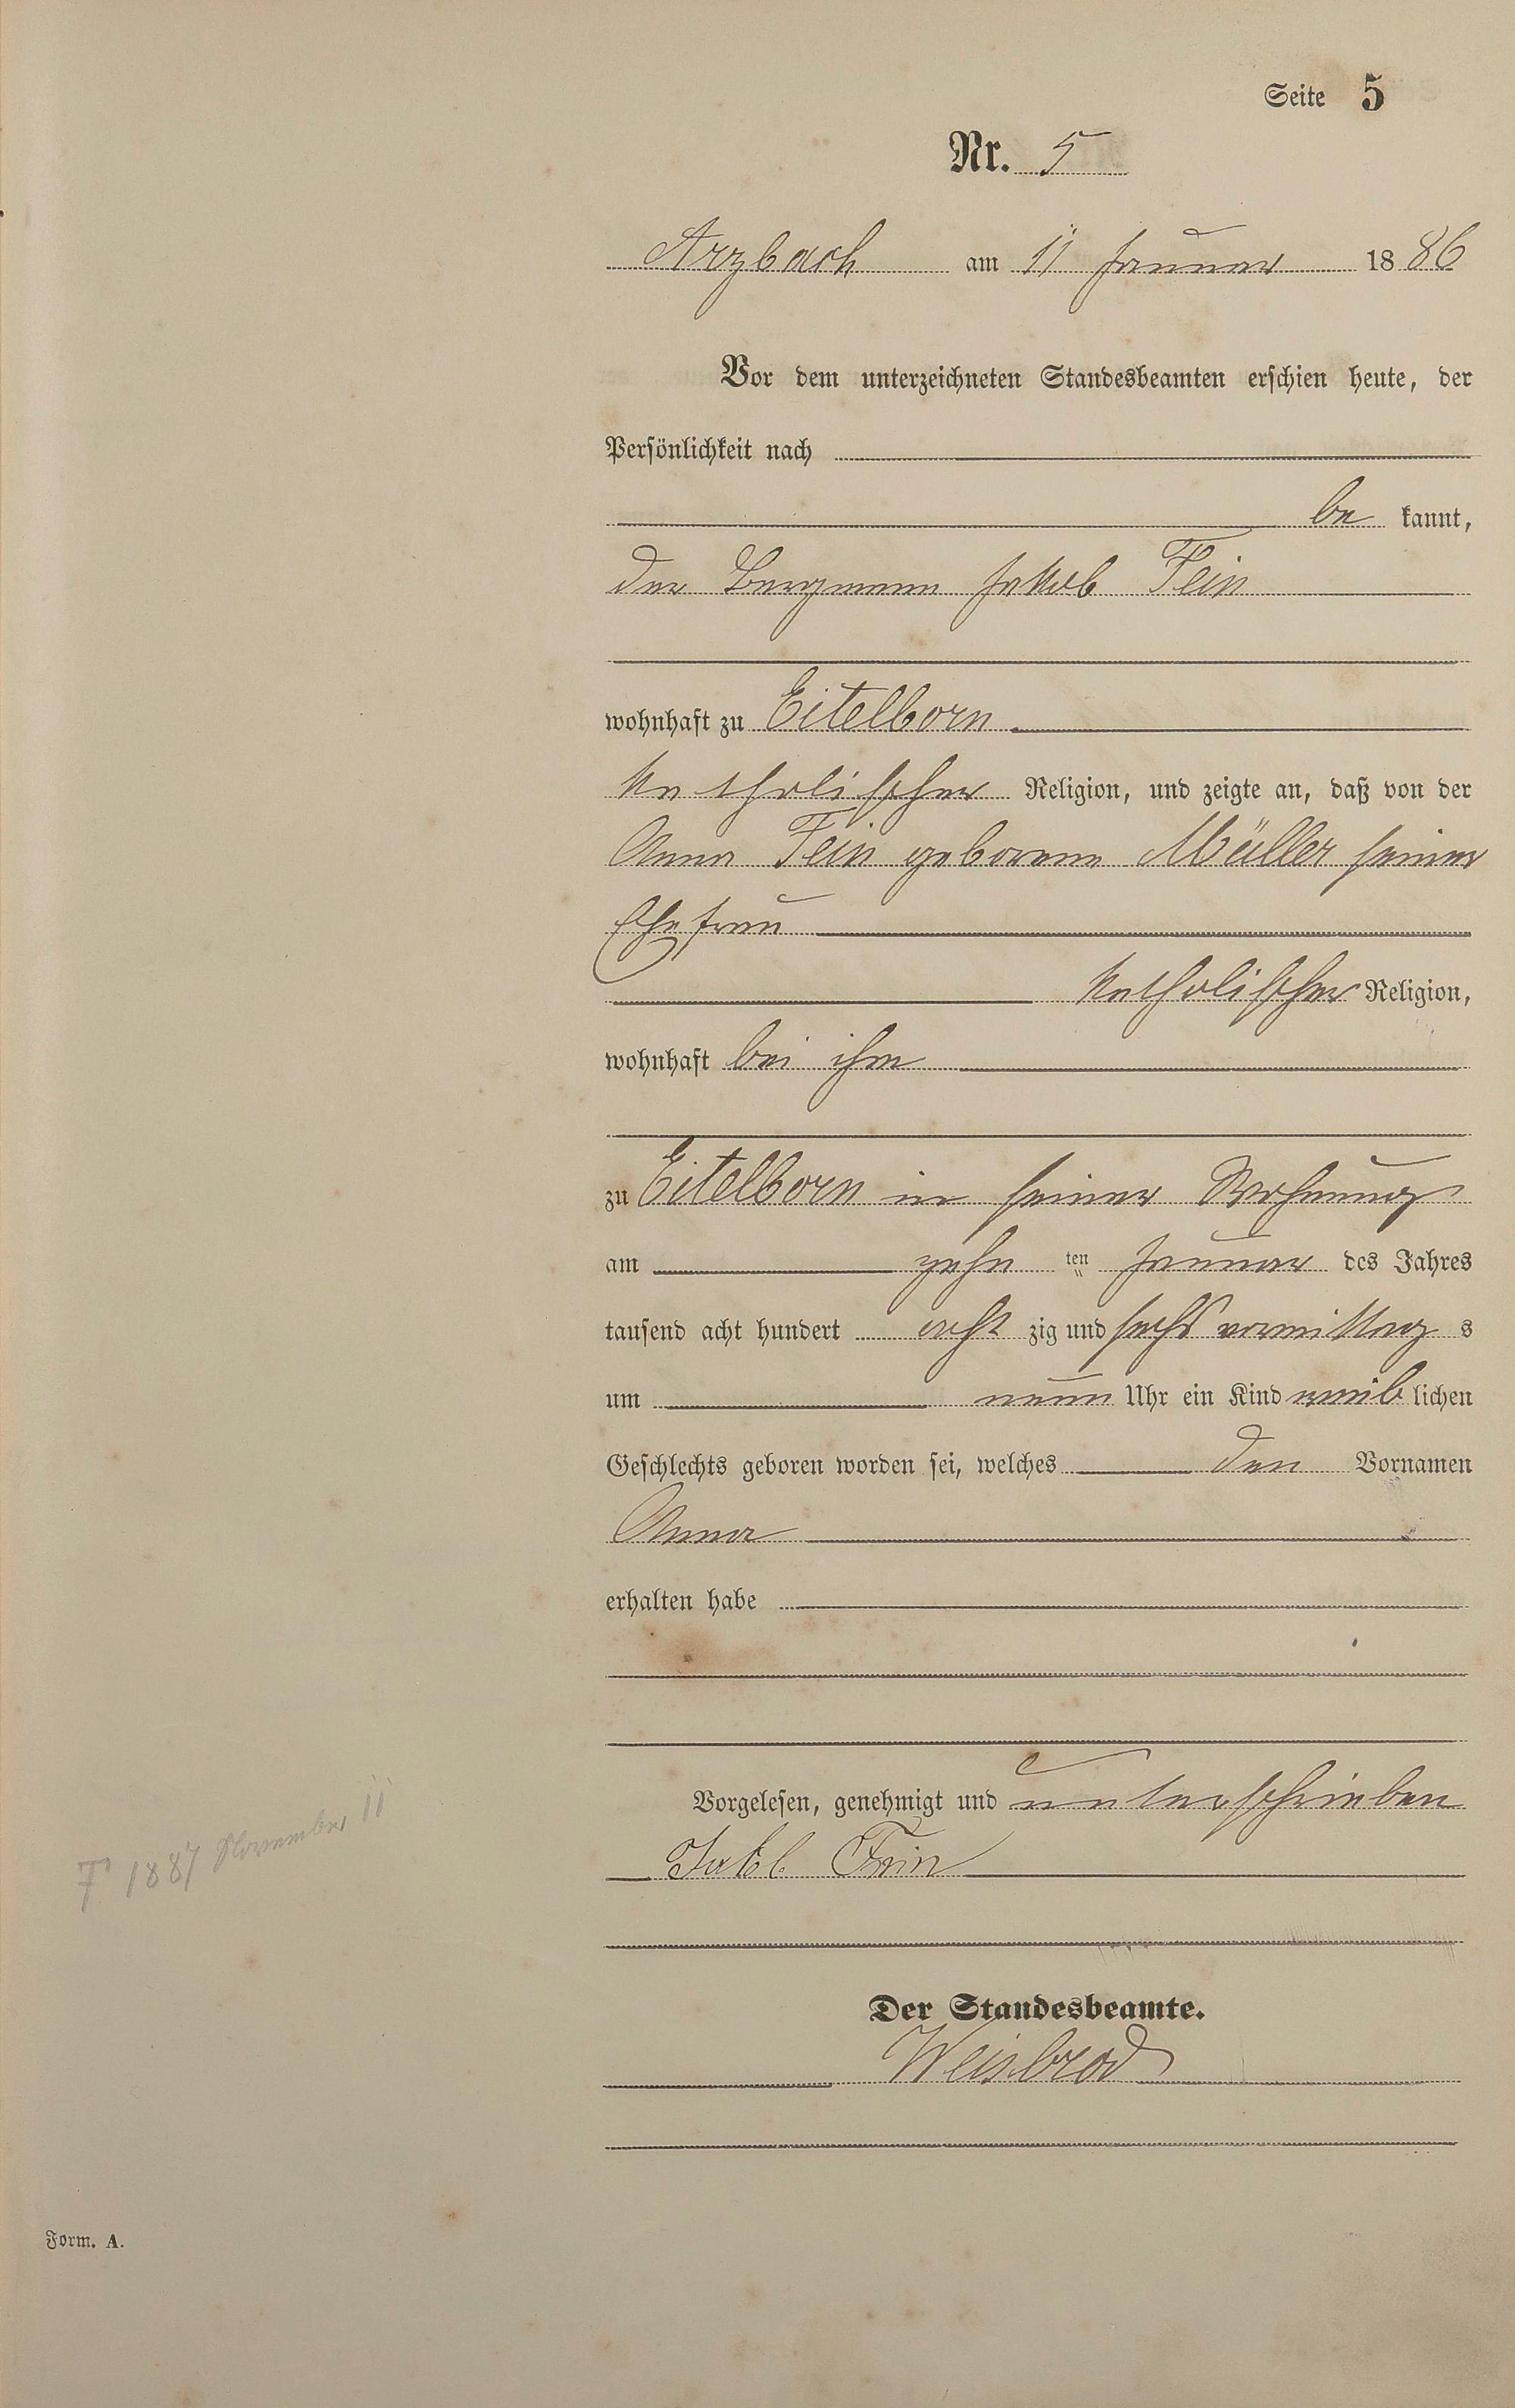 Seite 5
Nr. 5
Arzbach am 11 Januar 1886
Vor dem unterzeichneten Standesbeamten erschien heute, der
Persönlichkeit nach
be kannt,
der Bergmann Jakob Fein
wohnhaft zu Eitelborn
katholischer Religion, und zeigte an, daß von der
Anna Fein geborene Müller seiner
Ehefrau
katholischer Religion,
wohnhaft bei ihm
zu Eitelborn in seiner Wohnung
am zehn ten Januar des Jahres
tausend acht hundert acht zig und sechs vormittag s
um neun Uhr ein Kind weib lichen
Geschlechts geboren worden sei, welches den Vornamen
Anna
erhalten habe
Vorgelesen, genehmigt und unterschrieben
Jakob Fein
† 1887 November 11
Der Standesbeamte.
Weisbrod
Form. A.